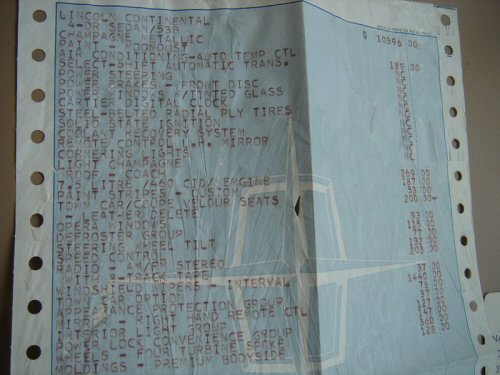 LINCOLN CONTINENTAL
4-DR SEDAN/53B
CHAMPAGNE METALLIC
PAINT - MOONDUST
AIR CONDITIONING-AUTO TEMP CTL
SELECT-SHIFT AUTOMATIC TRANS.
POWER STEERING
POWER BRAKES -/FRONT DISC
POWER WINDOWS /TINTED GLASS
CARTIER DIGITAL CLOCK
STEEL-BELTED RADIAL PLY TIRES
SOLID STATE IGNITION
COOLANT RECOVERY SYSTEM
REMOTE CONTROL L.H. MIRROR
CORNERING LIGHTS
LIGHT CHAMPAGNE
ROOF - COACH
7.5 LITRE/460 CID/ ENGINE
PAINT STRIPES - CUSTOM
TOWN CAR/COUPE VELOUR SEATS
- LEATHER DELETE
OPERA WINDOWS
DEFROSTER GROUP
STEERING WHEEL TILT
SPEED CONTROL
RADIO - AM/FM STEREO
WITH 8-TRACK TAPE
WINDSHIELD WIPERS - INTERVAL
TOWN CAR OPTION
APPEARANCE PROTECTION GROUP
MIRROR - RIGHT HAND REMOTE CTL
INTERIOR LIGHT GROUP
POWER LOCK CONVENIENCE GROUP
WHEELS - FOUR TURBINE SPOKE
MOLDINGS - PREMIUM BODYSIDE
$ 10396 00
189 00
269 00
187 00
53 00
200 00-
93 00
115 00
77 00
132 00
203 00
37 00
1440 00
37 00
147 00
360 00
128 00